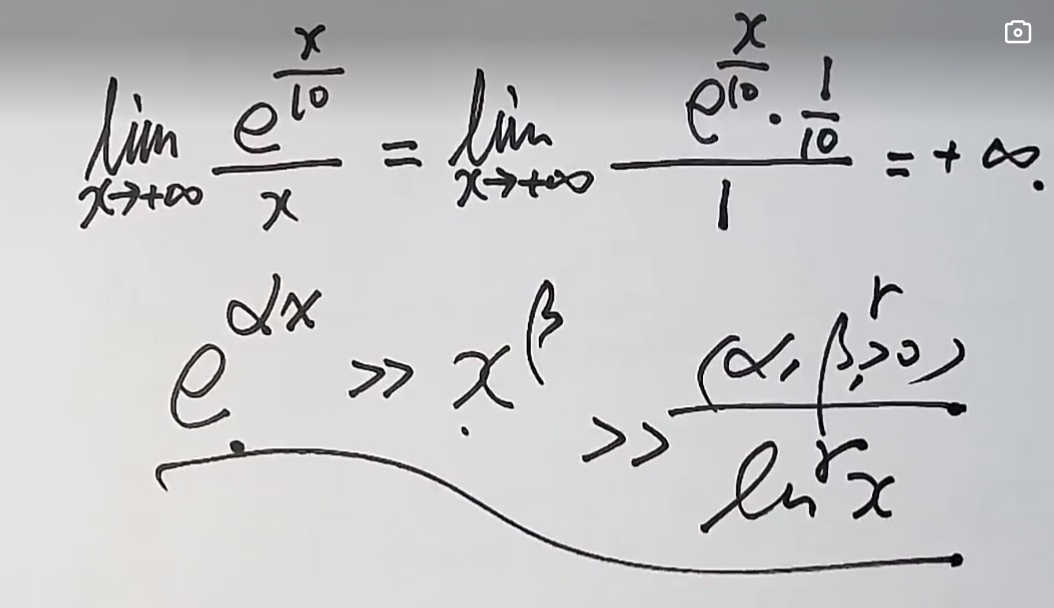 lim x→+∞ e^(x/10) / x = lim x→+∞ (e^(x/10) · 1/10) / 1 = +∞.
e^(αx) >> x^β >> ln^γ x (α, β, γ >0)